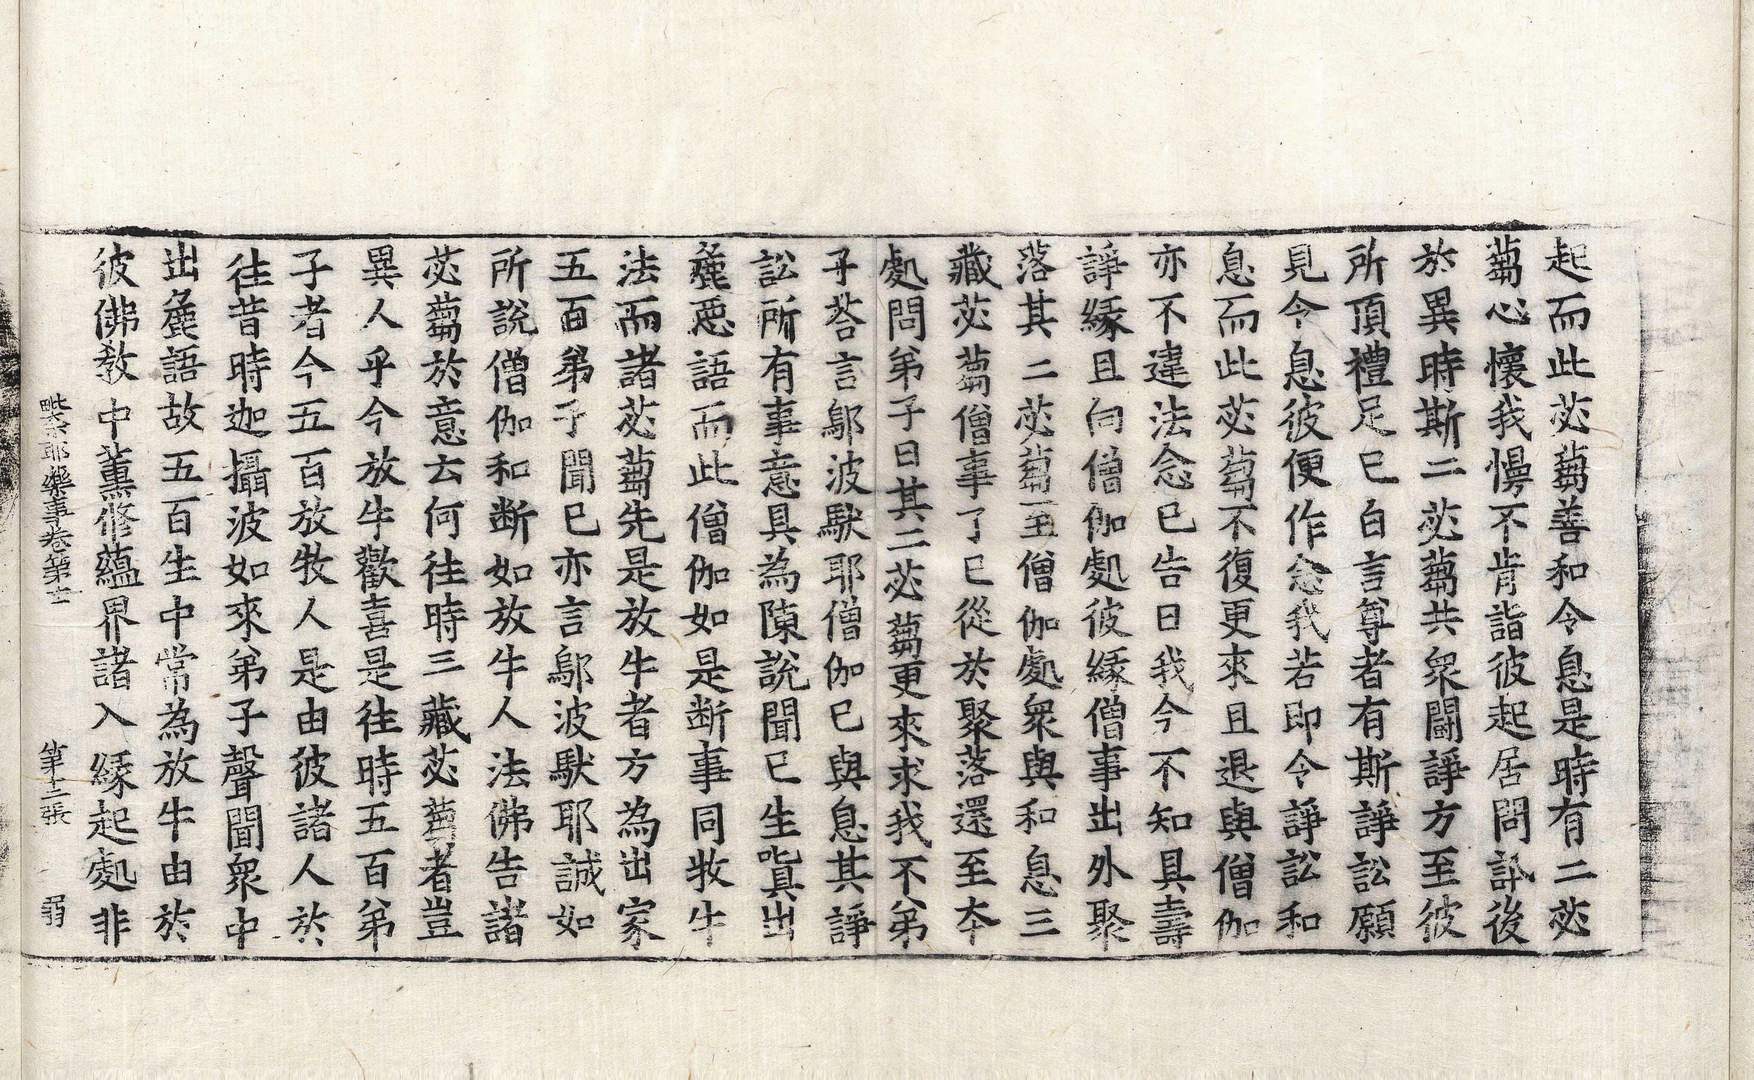 起而此苾蒭善和令息是時有二苾
蒭心懷我慢不肯詣彼起居問訊後
於異時斯二苾蒭共衆鬪諍方至彼
所頂禮足已白言尊者有斯諍訟願
見今息彼便作念我若即令諍訟和
息而此苾蒭不復更來且退與僧伽
亦不違法念已告曰我今不知具壽
諍緣且向僧伽處彼緣僧事出外聚
落其二苾蒭至僧伽處衆與和息三
藏苾蒭僧事了已從於聚落還至本
處問弟子曰其二苾蒭更來求我不弟
子荅言鄔波馱耶僧伽已與息其諍
訟所有事意具為陳說聞已生瞋出
麁惡語而此僧伽如是断事同牧牛
法而諸苾蒭先是放牛者方為出家
五百弟子聞已亦言鄔波馱耶誠如
所說僧伽和断如放牛人法佛告諸
苾蒭於意云何往時三藏苾蒭者豈
異人乎今放牛歡喜是往時五百弟
子者今五百放牧人是由彼諸人於
往昔時迦攝波如來弟子聲聞衆中
出麁語故五百生中常為放牛由於
彼佛教中薫修蘊界諸入緣起處非
毗奈耶藥事卷第十一　第十二張